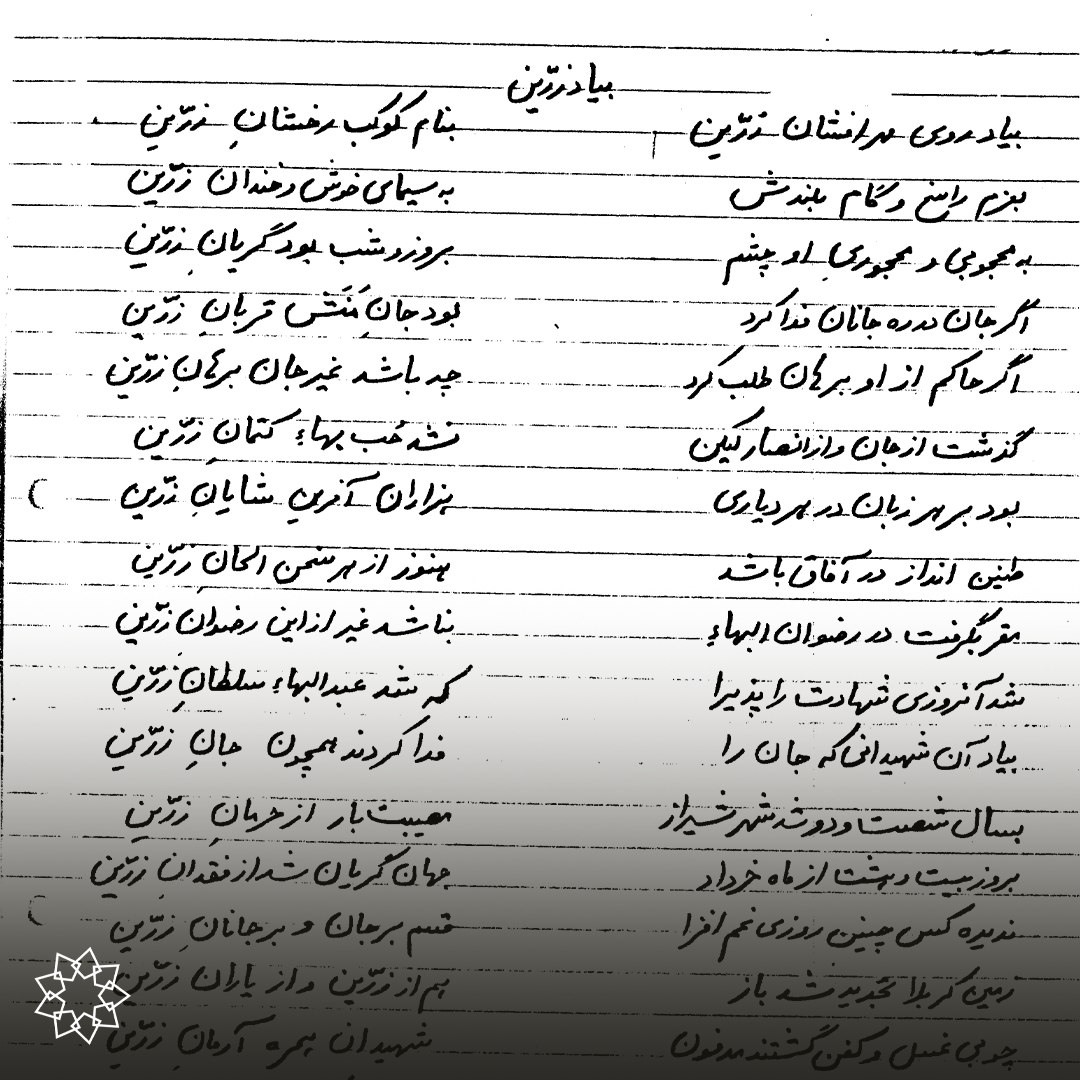 بیاد زرّین
بیاد روی مهر افشان زرّین بنام کوکب رخشانِ زرّین
بعزم راسخ و گام بلندش به سیمای خوش و خندان زرّین
به محجوبی و محجوری او چشم بروز و شب بود گریانِ زرّین
اگر جان در ره جانان فدا کرد بود جانِ مَنَش قربانِ زرّین
اگر حاکم از او برهان طلب کرد چه باشد غیر جان برهانِ زرّین
گذشت از جان و از انصار لیکن نشد حُب بهاء کتمانِ زرّین
بود بر هر زبان در هر دیاری هزاران آفرین شایانِ زرّین
طنین انداز در آفاق باشد هنوز از هر سخن الحانِ زرّین
مقر بگرفت در رضوان البهاء بنا شد غیر از این رضوانِ زرّین
شد آنروزی شهادت را پذیرا که شد عبدالبهاء سلطانِ زرّین
بیاد آن شهیدانی که جان را فدا کردند همچون جانِ زرّین
بسال شصت و دو شد شهر شیراز مصیبت بار از حرمانِ زرّین
بروز بیست و هشت از ماه خرداد جهان گریان شد از فقدانِ زرّین
ندیده کس چنین روزی غم افزا قسم بر جان و بر جانانِ زرّین
زمین کربلا تجدید شد باز هم از زرّین و از یاران زرّین
چو بی غسل و کفن گشتند مدفون شهیدان همره آرمانِ زرّین